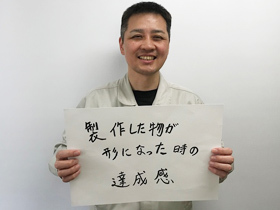 製作した物が
形になった時の
達成感